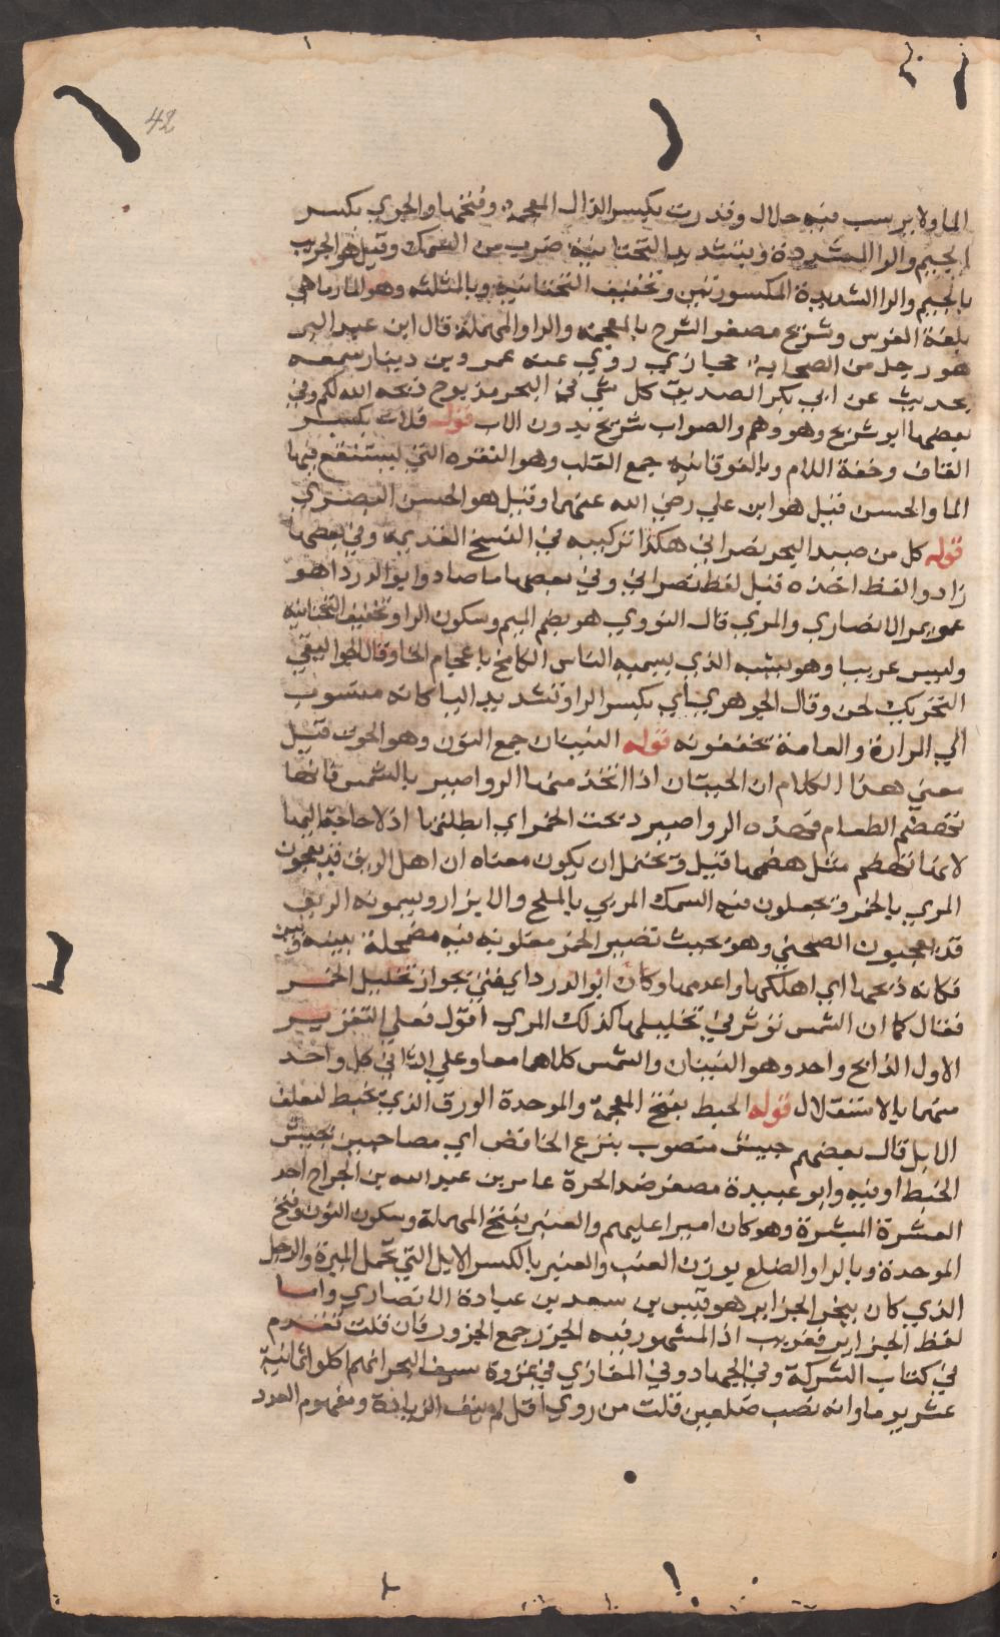 42
الما ولا يرسب فيه حلال وقذرت بكسر الذال المعجمة وفتحها والجري بكسر
الجيم والراء المشددة وبتشديد التحتانية ضرب من السمك وقيل هو الجريث
بالجيم والرا الشديدة المكسورتين وتخفيف التحتانية وبالمثلثه وهو المارماهي
بلغة الفرس وشريح مصغر الشرح بالمعجمة والرا والمهملة قال ابن عبد البر
هو رجل من الصحابة حجازي روي عنه عمرو بن دينار سمعه
يحدث عن ابي بكر الصديق كل شي في البحر مذبوح ذبحه الله لكم وفي
بعضها ابو شريح وهو وهم والصواب شريح بدون الاب قوله قلات بكسر
القاف وخفة اللام وبالفوقانيه جمع القلت وهو النقره التي يستنقع فيها
الما والحسن قيل هو ابن علي رضي الله عنهما وقيل هو الحسن البصري
قوله كل من صيد البحر نصراني هكذا تركيبه في النسخ القديمة وفي بعضها
زادوا لفظ اخذه قبل لفظ نصراني وفي بعضها ما صاد وابو الدرداهو
عويمر الانصاري والمري قال النووي هو بضم الميم وسكون الرا وتخفيف التحتانية
وليس عربيا وهو يشبه الذي يسميه الناس الكامخ باعجام الخا وقال الجواليقي
التحريك لحن وقال الجوهري بكسر الرا وتشديد اليا كانه منسوب
الي المرارة والعامة تخففونه قوله النينان جمع النون وهو الحوت قيل
معني هذا الكلام ان الحيتان اذا اتخذ منها الرواصير بالشمس فانها
تهضم الطعام فهذه الرواصير ذبحت الخمر اي ابطلتها اذ لا حاجة اليها
لانها تهضم مثل هضمها قيل ويحتمل ان يكون معناه ان اهل الريف قد يعجنون
المري بالخمر ويجعلون فيه السمك المربي بالملح والابزار ويسمونه
قد الصحني وهو بحيث تصير الخمر مغلوبه فيه مضمحلة بينه وبين
فكانه ذبحها اي اهلكها واعدمها وكان ابو الدردا يفتي بجواز تخليل الخمر
فقال كما ان الشمس تؤثر في تخليلها كذلك المري اقول فعلي التقرير
الاول الذابح واحد وهو النينان والشمس كلاهما معا وعلي الثاني كل واحد
منهما بالاستقلال قوله الخبط بفتح المعجمة والموحدة الورق الذي يخبط لعلف
الابل قال بعضهم جيش منصوب بنزع الخافض اي مصاحبين لجيش
الخبط او فيه وابو عبيدة مصغر ضد الحرة عامر بن عبد الله بن الجراح احد
العشرة المبشرة وهو كان اميرا عليهم والعنبر بفتح المهملة وسكون النون وفتح
الموحدة وبالرا والضلع بوزن العنب والعير بالكسر الابل التي تحمل الميرة والرجل
الذي كان ينحر الجزاير هو قيس بن سعد بن عبادة الانصاري واما
لفظ الجزاير فغريب اذ المشهور فيه الجزر جمع الجزور فان قلت تقدم
في كتاب الشركة وفي الجهاد وفي المغازي في غزوة سيف البحر انهم اكلوا ثمانية
عشر يوما وانه نصب ضلعين قلت من روي اقل لم ينف الزيادة ومفهوم العدد